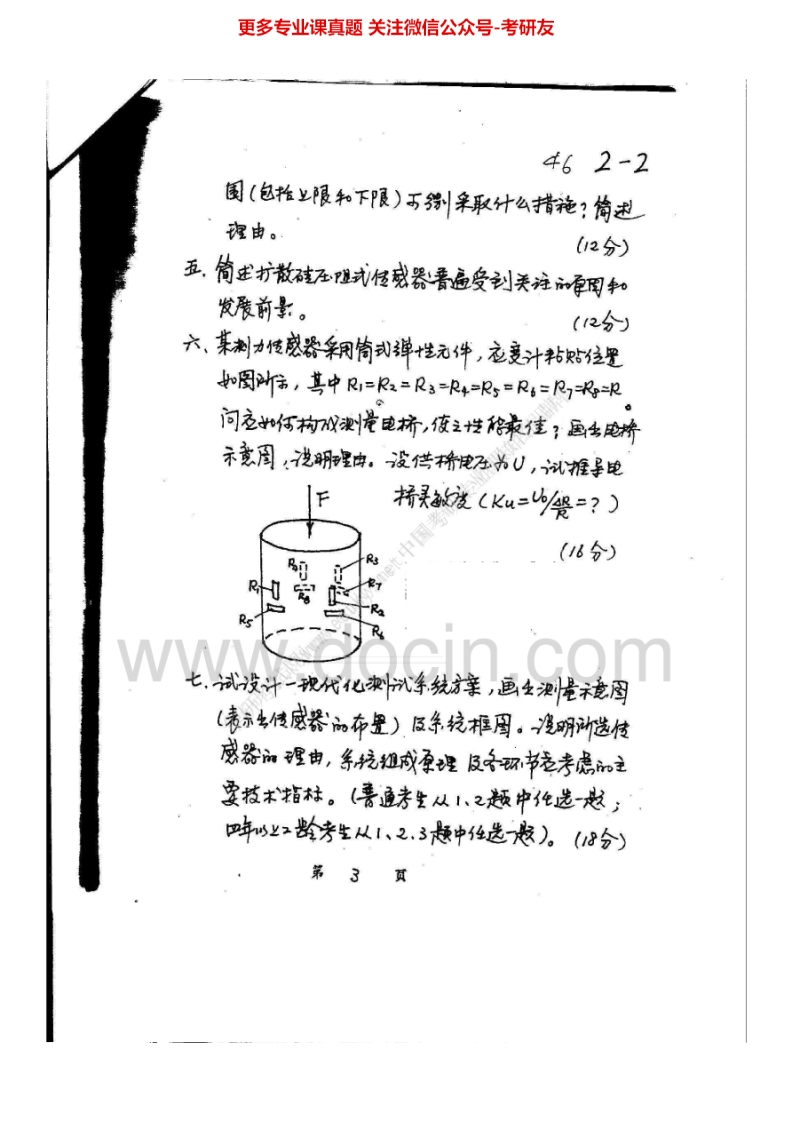 更多专业课真题 关注微信公众号-考研友
46 2-2
围(包括上限和下限)可分别采取什么措施?简述
理由。
(12分)
五、简述扩散硅压阻式传感器普遍受到关注的原因和
发展前景。
(12分)
六、某测力传感器采用筒式弹性元件,应变计粘贴位置
如图所示,其中R1=R2=R3=R4=R5=R6=R7=R8=R
问应如何构成测量电桥,使之性能最佳?画出电桥
示意图,说明理由。设供桥电压为U,试推导电
桥灵敏度(Ku=U0/ΔR/R=?)
(16分)
F
R3
R7
R8
R1
R2
R5
R6
www.docin.com
七、试设计一现代化测试系统方案,画出测量示意图
(表示出传感器的布置)及系统框图。说明所选传
感器的理由,系统组成原理及各环节应考虑的主
要技术指标。(普通考生从1、2题中任选一题;
四年以上工龄考生从1、2、3题中任选一题)。(18分)
第 3 页